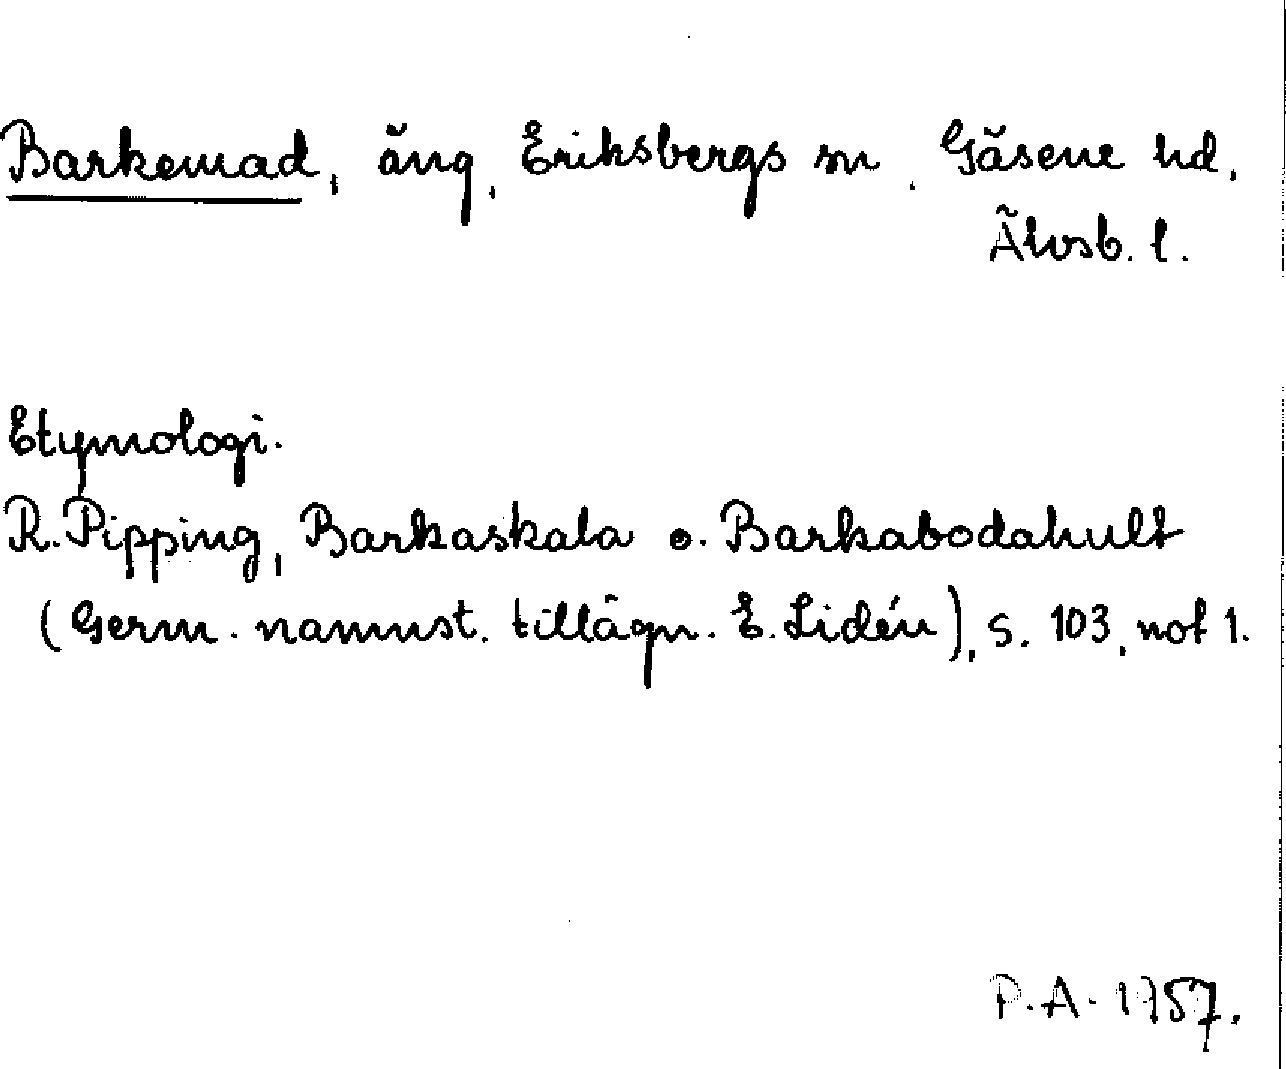 Barkemad, äng, Eriksbergs sn, Gäsene hd,
Älvsb. l.
Etymologi.
R. Pipping, Barkaskala o. Barkabodahult
(Germ. namnst. tillägn. E. Lidén), s. 103, not 1.
P.A. 1957.